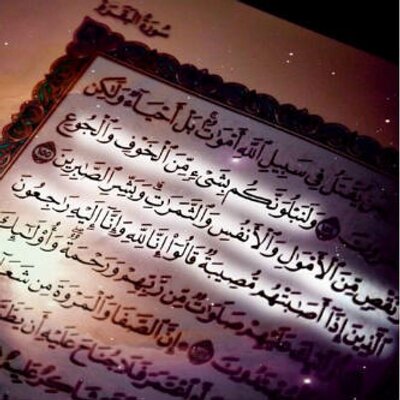 سُورَةُ البَقَرَةِ
يُقْتَلُ فِي سَبِيلِ اللَّهِ أَمْوَاتٌ بَلْ أَحْيَاءٌ وَلَٰكِن
وَلَنَبْلُوَنَّكُم بِشَيْءٍ مِّنَ الْخَوْفِ وَالْجُوعِ
وَنَقْصٍ مِّنَ الْأَمْوَالِ وَالْأَنفُسِ وَالثَّمَرَاتِ وَبَشِّرِ الصَّابِرِينَ
الَّذِينَ إِذَا أَصَابَتْهُم مُّصِيبَةٌ قَالُوا إِنَّا لِلَّهِ وَإِنَّا إِلَيْهِ رَاجِعُونَ
عَلَيْهِمْ صَلَوَاتٌ مِّن رَّبِّهِمْ وَرَحْمَةٌ وَأُولَٰئِكَ
إِنَّ الصَّفَا وَالْمَرْوَةَ مِن شَعَا
فَلَا جُنَاحَ عَلَيْهِ أَن يَطَّ